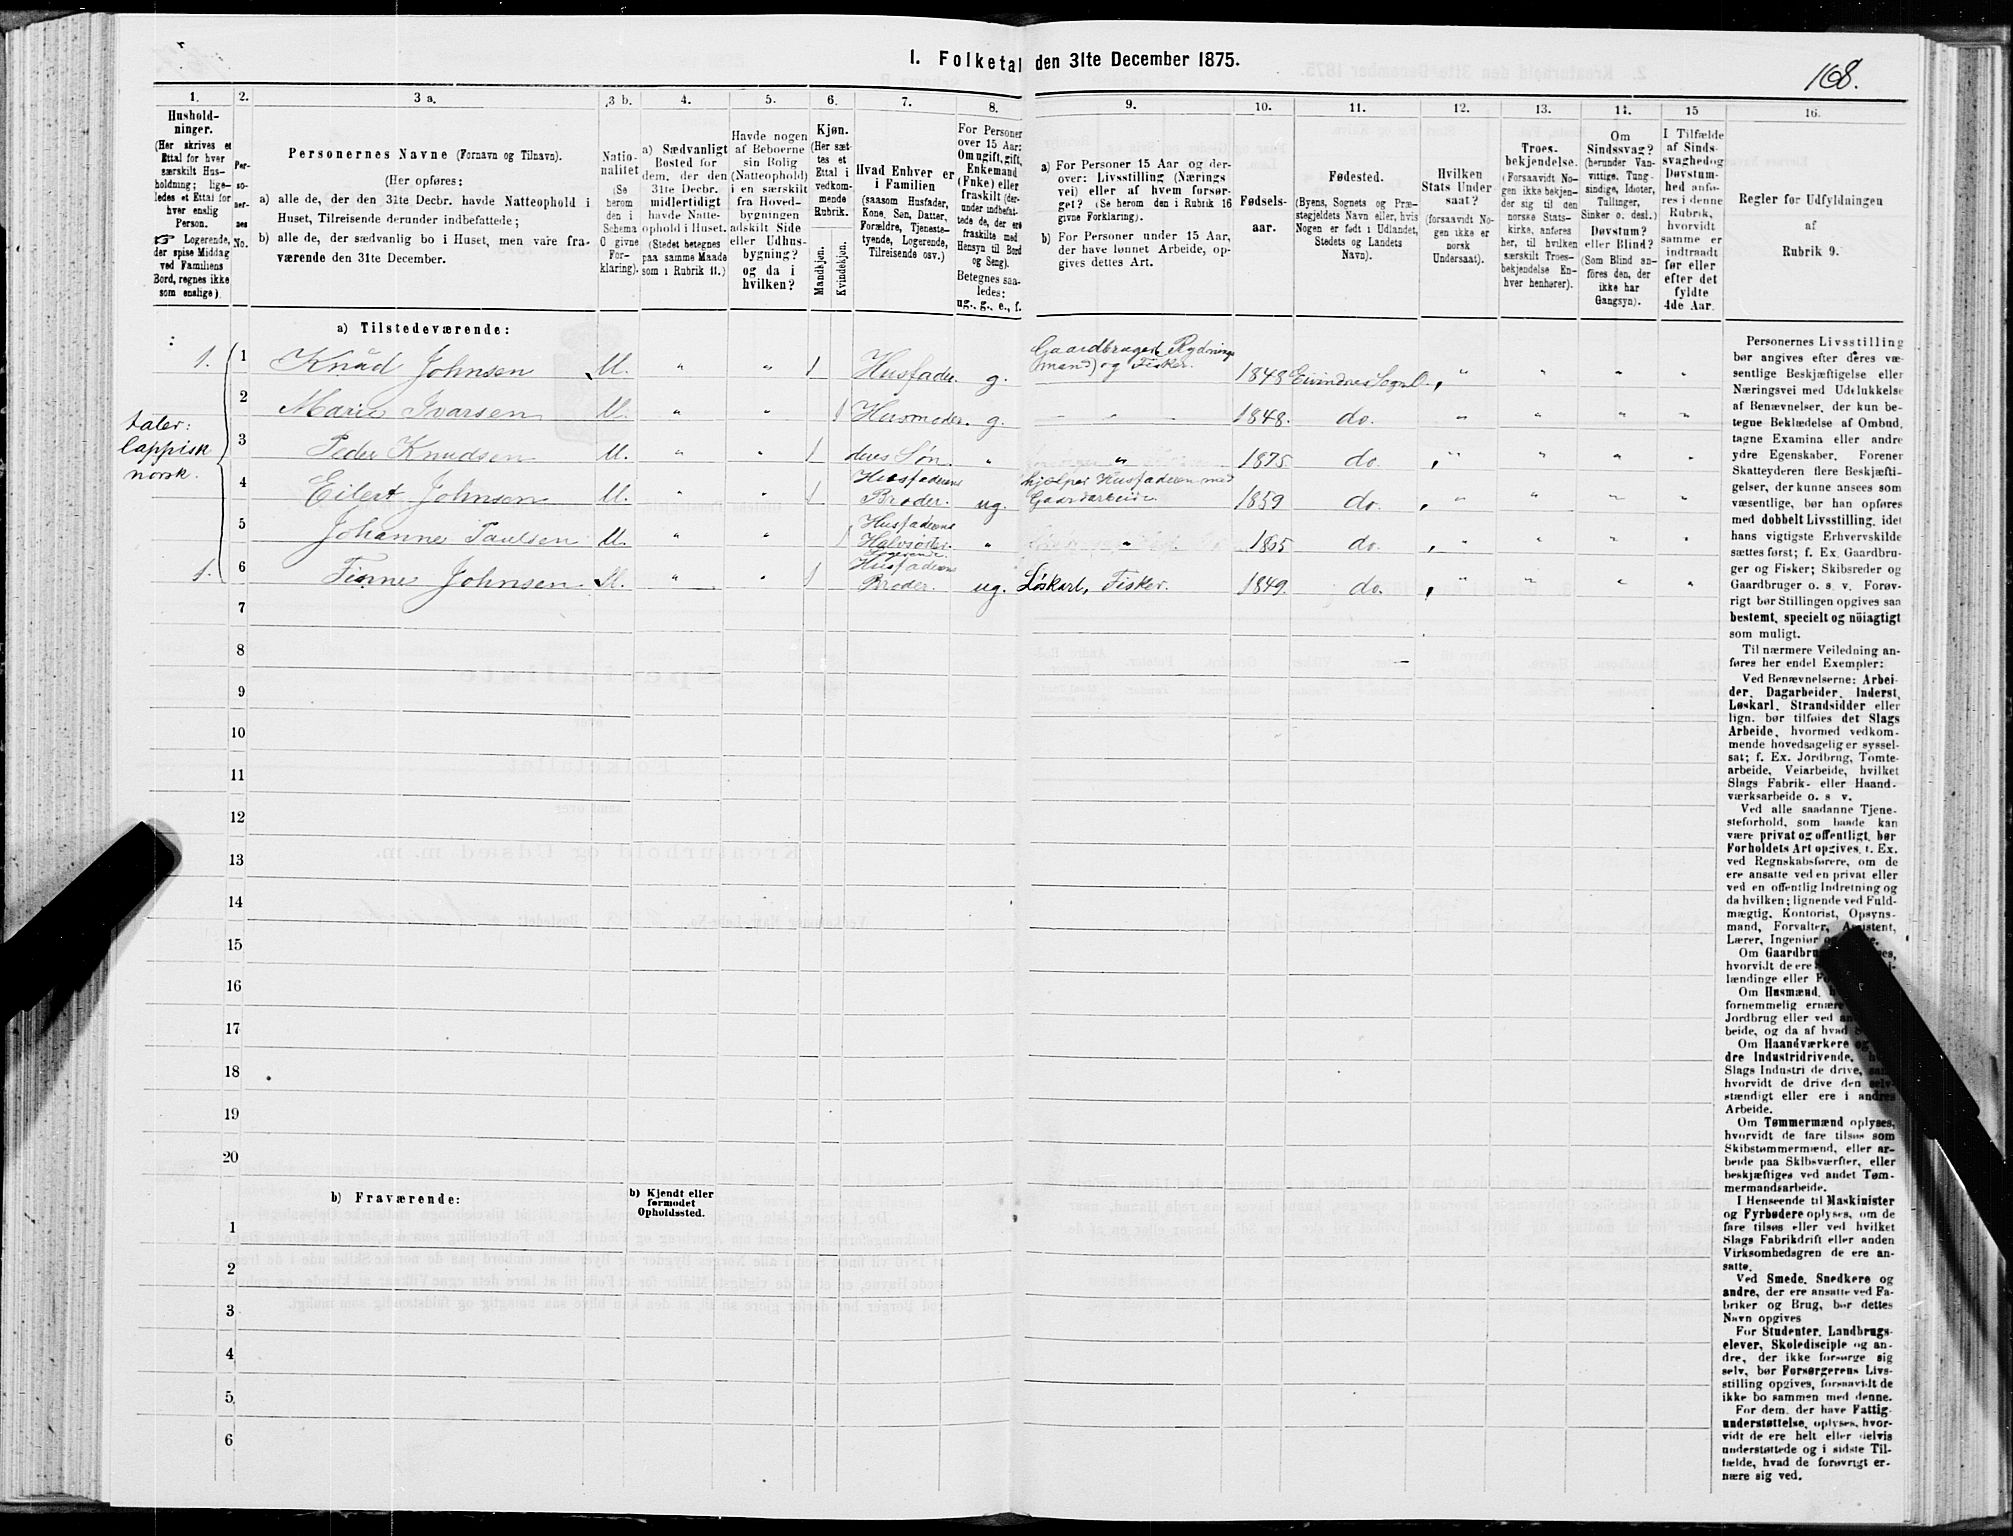 1. Folketal den 31te December 1875.
168.
1.
Hushold-
ninger.
(Her skrives et
Ettal for hver
særskilt Hus-
holdning; lige-
ledes et Ettal for
hver enslig
Person.
☞ Logerende,
der spise Middag
ved Familiens
Bord, regnes ikke
som enslige).
2.
Per-
so-
ner-
nes
No.
3 a.
Personernes Navne (Fornavn og Tilnavn).
(Her opføres:
a) alle de, der den 31te Decbr. havde Natteophold i
Huset, Tilreisende derunder indbefattede;
b) alle de, der sædvanlig bo i Huset, men vare fra-
værende den 31te December.
3 b.
Natio-
nalitet
(Se
herom
den i
Schema
O givne
For-
klaring).
4.
a) Sædvanligt
Bosted for
dem, der den
31te Decbr.
midlertidigt
havde Natte-
ophold i Huset.
(Stedet betegnes
paa samme Maade
som i Rubrik 11.)
5.
Havde nogen
af Beboerne
sin Bolig
(Natteophold)
i en særskilt
fra Hoved-
bygningen
adskilt Side
eller Udhus-
bygning?
og da i
hvilken?
6.
Kjøn.
(Her sæt-
tes et
Ettal i
vedkom-
mende
Rubrik.
Mandkjøn.
Kvindekjøn.
7.
Hvad Enhver er
i Familien
(saasom Husfader,
Kone, Søn, Datter,
Forældre, Tjeneste-
tyende, Logerende,
Tilreisende osv.)
8.
For Personer
over 15 Aar:
Om ugift, gift,
Enkemand
(Enke) eller
fraskilt (der-
under indbefat-
tede de, der ere
fraskilte med
Hensyn til Bord
og Seng).
Betegnes saa-
ledes:
ug., g., e., f.
9.
a) For Personer 15 Aar og der-
over: Livsstilling (Nærings
vei) eller af hvem forsør-
get? (Se herom den i Rubrik 16
givne Forklaring).
b) For Personer under 15 Aar,
der have lønnet Arbeide, op-
gives dettes Art.
10.
Fødsels-
aar.
11.
Fødested.
(Byens, Sognets og Præ-
stegjeldets Navn eller, hvis
Nogen er født i Udlandet,
Stedets og Landets
Navn).
12.
Hvilken
Stats Under
saat?
(forsaavidt No-
gen ikke er
norsk
Undersaat).
13.
Troes-
bekjendelse.
(Forsaavidt No-
gen ikke bekjen-
der sig til den
norske Stats-
kirke, anføres
her, til hvilken
særskilt Troes-
bekjendelse En-
hver henhører).
14.
Om
Sindssvag?
(herunder Van-
vittige, Tung-
sindige, Idioter,
Tullinger,
Sinker o. desl.)
Døvstum?
eller Blind?
(Som Blind an-
føres den, der
ikke har
Gangsyn).
15
I Tilfælde
af Sinds-
svaghed og
Døvstum-
hed anfø-
res i denne
Rubrik,
hvorvidt
samme er
indtraadt
før eller
efter det
fyldte
4de Aar.
16.
Regler for Udfyldningen
af
Rubrik 9.
a) Tilstedeværende:
1. 1 Knud Johnsen M. " " 1 Husfader. g. Gaardbruger (Rydnings
mand) og Fisker. 1848 Eivindnes Sogn " " " "
2 Marie Ivarsen M. " " 1 Husmoder. g. " 1848. do. " " " "
taler:
lappisk
norsk.
3 Peder Knudsen M. " " 1 deres Søn. " " 1875 do. " " " "
4 Eilert Johnsen M. " " 1 Husfaderens
Broder. ug. hjælper Husfaderen med
Gaardarbeide. 1859 do. " " " "
5 Johanne Paulsen M. " " 1 Husfaderens
Halvsøster. " " 1865 do. " " " "
1. 6 Finne Johnsen M. " " 1 Logerende.
Husfaderens
Broder. ug. Løskarl, Fisker. 1849. do. " " " "
7
8
9
10
11
12
13
14
15
16
17
18
19
20
b) Fraværende:
b) Kjendt eller
formodet
Opholdssted.
1
2
3
4
5
6
Personernes Livsstilling
bør angives efter deres væ-
sentlige Beskjæftigelse eller
Næringsvei med Udelukkelse
af Benævnelser, der kun be-
tegne Beklædelse af Ombud,
tagne Examina eller andre
ydre Egenskaber. Forener
Skatteyderen flere Beskjæfti-
gelser, der kunne ansees som
væsentlige, bør han opføres
med dobbelt Livsstilling, idet
hans vigtigste Erhvervskilde
sættes først; f. Ex. Gaardbru-
ger og Fisker; Skibsreder og
Gaardbruger o. s. v. Forøv-
rigt bør Stillingen opgives saa
bestemt, specielt og nöiagtigt
som muligt.
Til nærmere Veiledning an-
føres her endel Exempler:
Ved Benævnelserne: Arbei-
der, Dagarbeider, Inderst,
Løskarl, Strandsidder eller
lign. bør tilføies det Slags
Arbeide, hvormed vedkom-
mende hovedsagelig er syssel-
sat; f. Ex. Jordbrug, Tomte-
arbeide, Veiarbeide, hvilket
Slags Fabrik- eller Haand-
værksarbeide o. s v.
Ved alle saadanne Tjene-
steforhold, som baade kan
være privat og offentligt, bør
Forholdets Art opgives, f. Ex.
ved Regnskabsførere, om de
ere ansatte ved en privat eller
ved en offentlig Indretning og
da hvilken; lignende ved Fuld-
mægtig, Kontorist, Opsyns-
mand, Forvalter, Assistent,
Lærer, Ingeniør
Om Gaardbru
hvorvidt de ere
lændinge eller
Om Husmænd,
fornemmelig ernære
Jordbrug eller ved
beide, og da af hvad
Om Haandværkere og
dre Industridrivende,
Slags Industri de drive, samt
hvorvidt de drive den selv-
stændigt eller ere i andres
Arbeide.
Om Tømmermænd oplyses,
hvorvidt de fare tilsøs som
Skibstømmermænd, eller ar-
beide paa Skibsværfter, eller
beskjæftiges ved andet Tøm-
mermandsarbeide.
I Henseende til Maskinister
og Fyrbødere oplyses, om de
fare tilsøs eller ved hvilket
Slags Fabrikdrift eller anden
Virksomhedsgren de ere an-
satte.
Ved Smede, Snedkere og
andre, der ere ansatte ved Fa-
briker og Brug, bør dettes
Navn opgives
For Studenter, Landbrugs-
elever, Skoledisciple og an-
dre, der ikke forsørge sig
selv, bør Forsørgerens Livs-
stilling opgives, forsaavidt de
ikke bo sammen med denne.
For dem, der have Fattig-
understøttelse, oplyses, hvor-
vidt de ere helt eller delvis
understøttede og i sidste Til-
fælde, hvad de forøvrigt er-
nære sig ved.